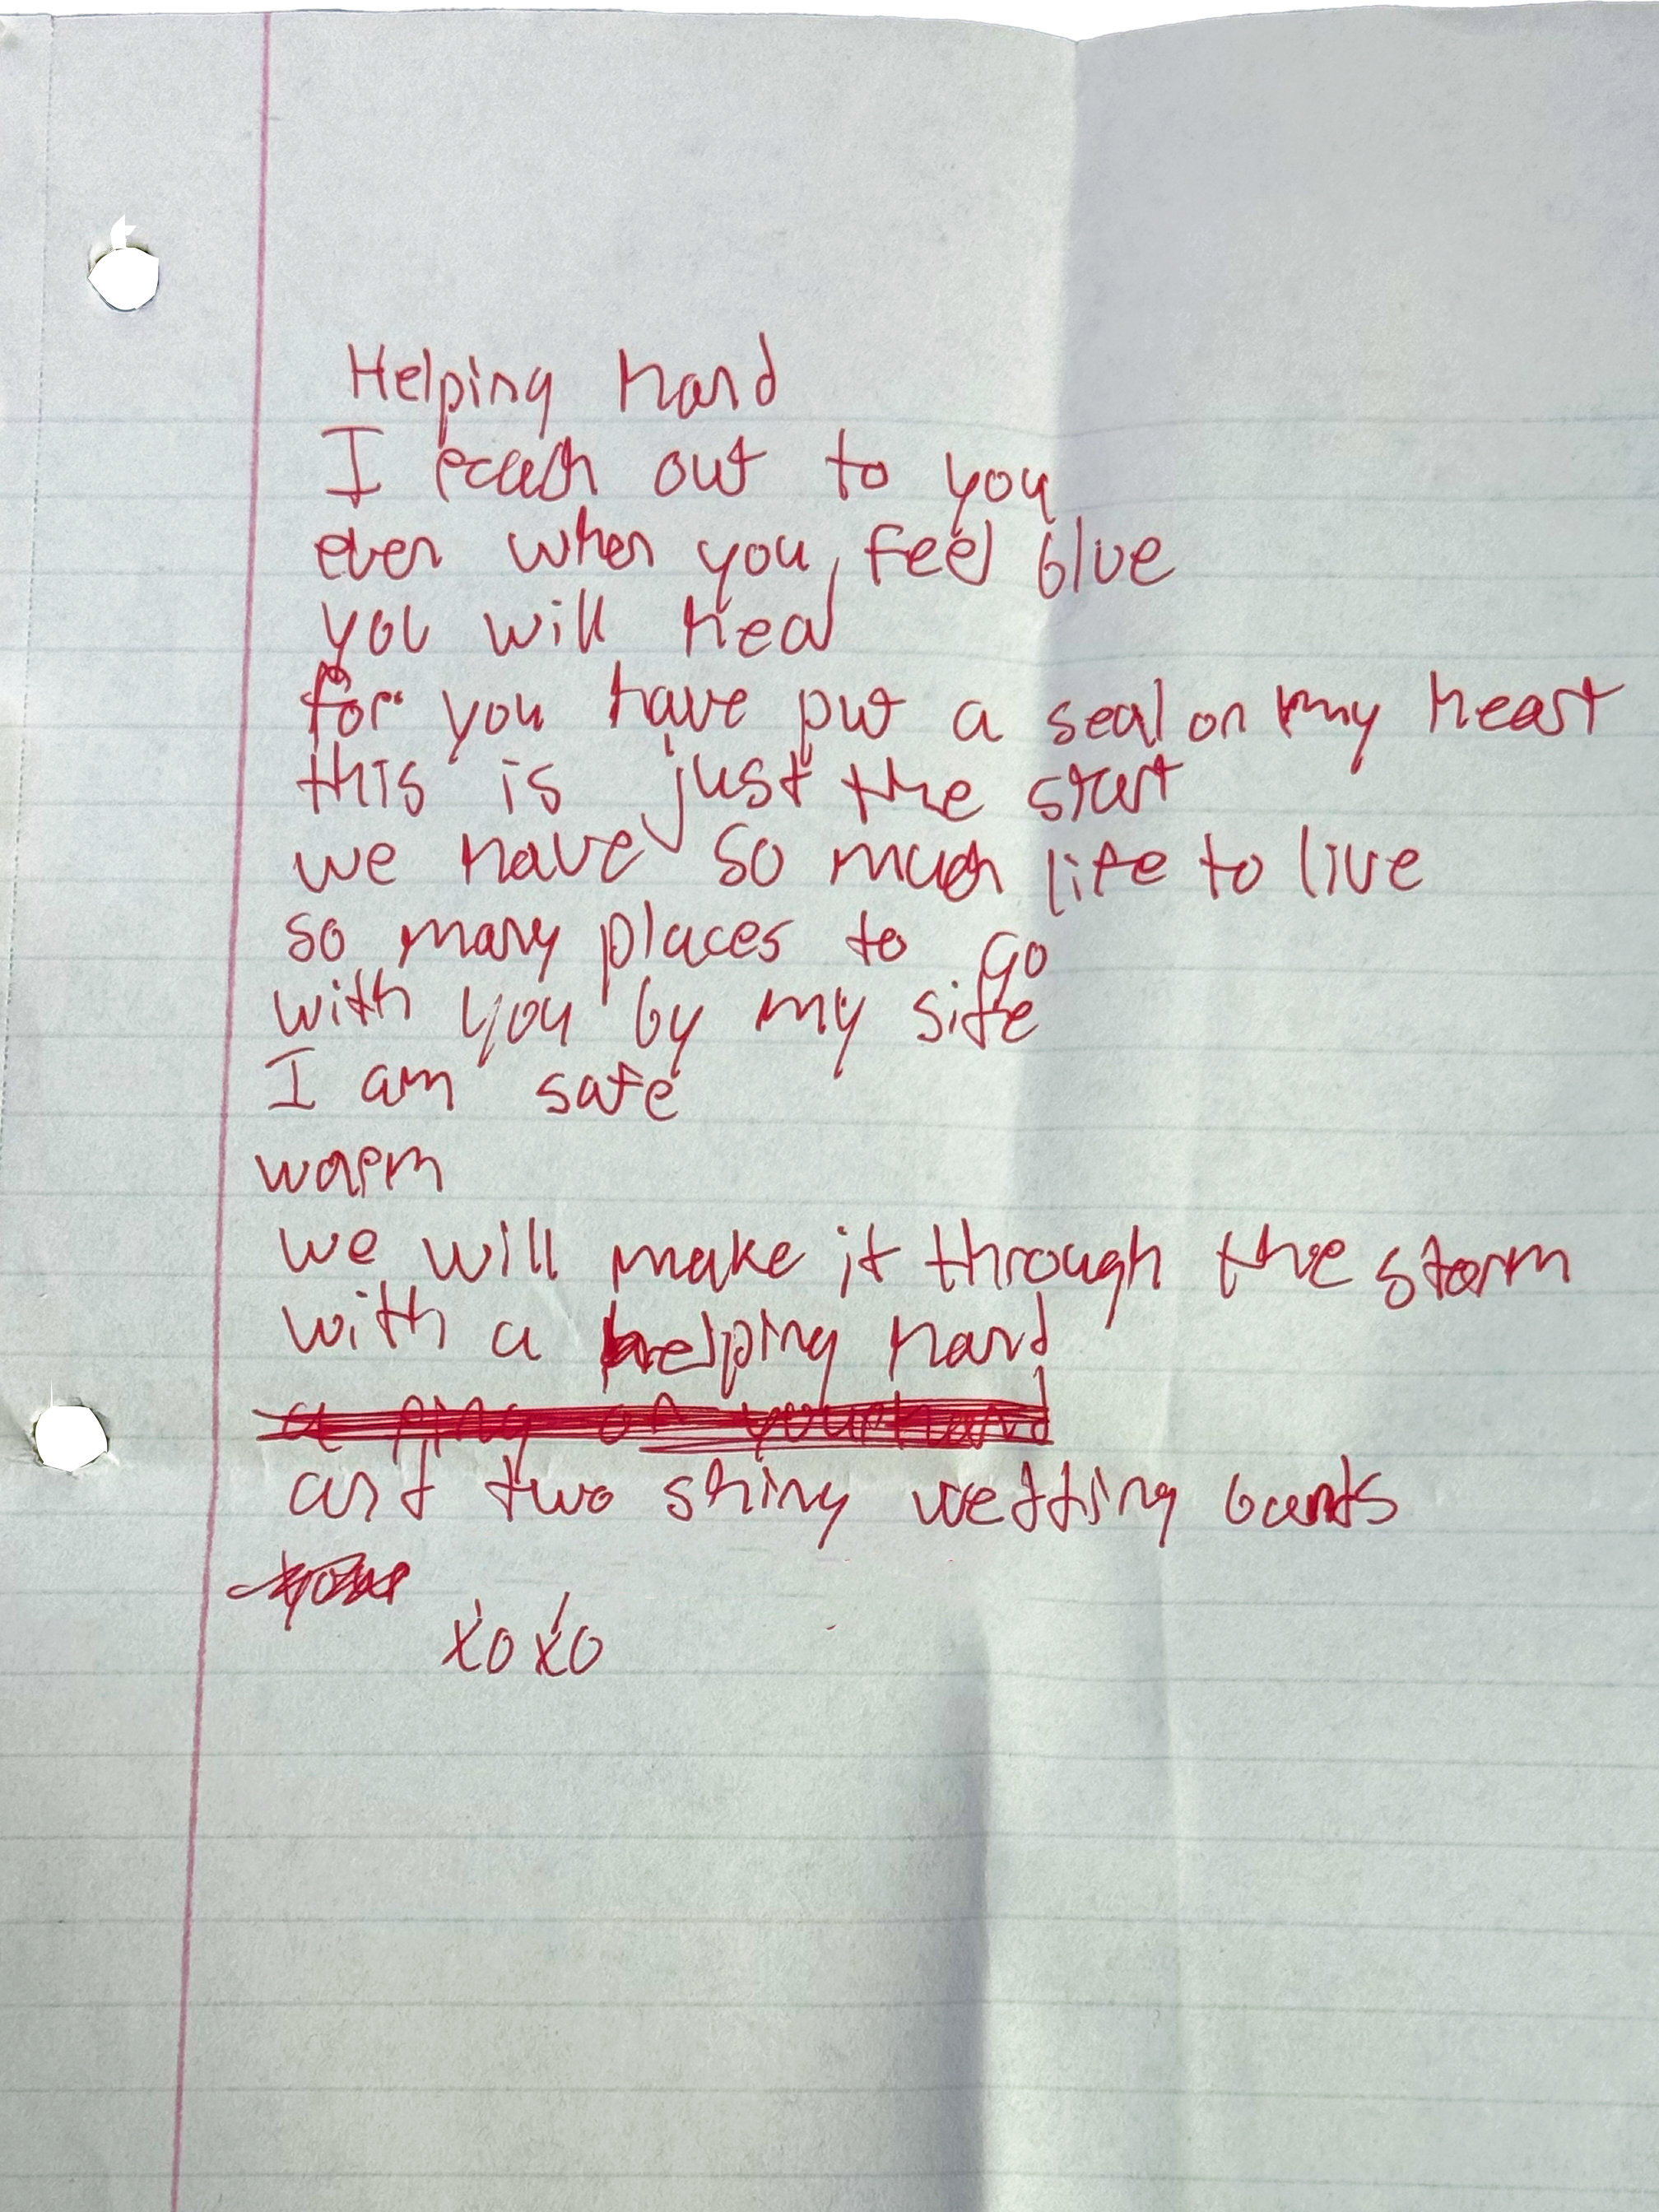 Helping hand
I reach out to you
even when you feel blue
you will heal
for you have put a seal on my heart
this is just the start
we have so much life to live
so many places to go
with you by my side
I am safe
warm
we will make it through the storm
with a helping hand
a ring on your hand
and two shiny wedding bands
xoxo